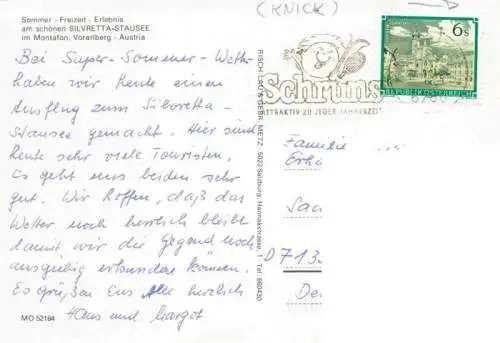 (KNICK)
Sommer - Freizeit - Erlebnis
am schönen SILVRETTA-STAUSEE
im Montafon, Vorarlberg - Austria
6s
REPUBLIK ÖSTERREICH
Schruns
ATTRAKTIV ZU JEDER JAHRESZEIT
Bei Super-Sommer-Wetter
haben wir heute einen
Ausflug zum Silvretta-
Stausee gemacht. Hier sind
heute sehr viele Touristen.
Es geht uns beiden sehr
gut. Wir hoffen, daß das
Wetter noch herrlich bleibt
damit wir die Gegend noch
ausgiebig erkunden können.
Es grüßen Eus Alle herzlich
Hans und Margot
MO 52184
RISCH-LAU & GEBR. METZ · 5023 Salzburg, Hannakstrasse. 1 - Tel. 660430
Familie
D 713